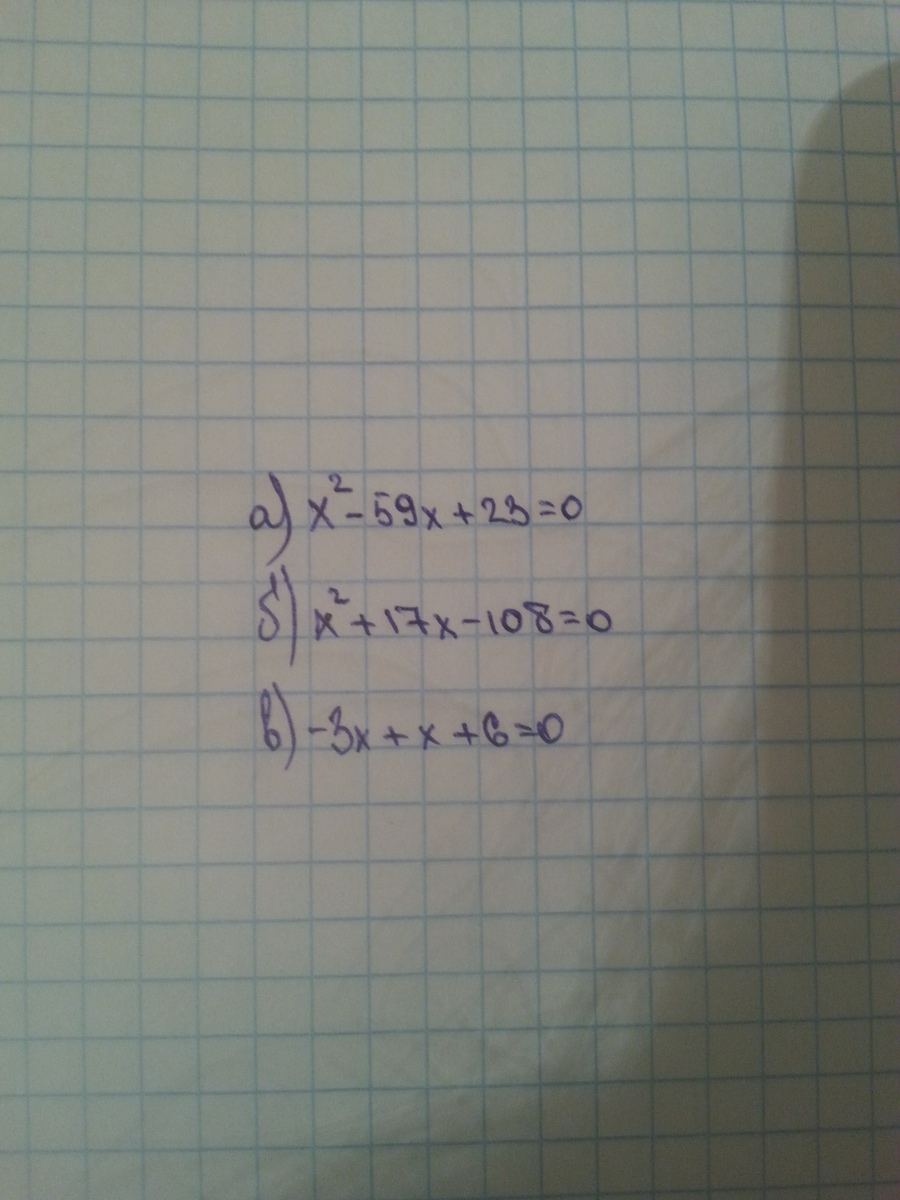 а) x²-59x+23=0
б) x²+17x-108=0
в) -3x+x+6=0